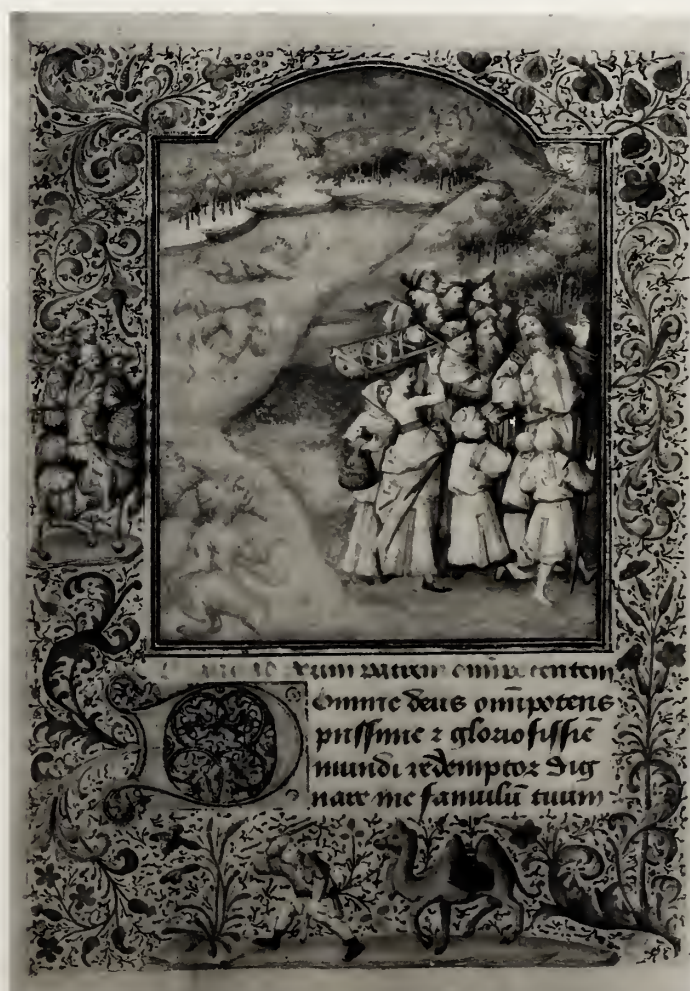 patrem omīpotentem
Domine deus omīpotens
piissime ⁊ gloriosissīe
mundi redemptor Dig
nare me famulū tuum